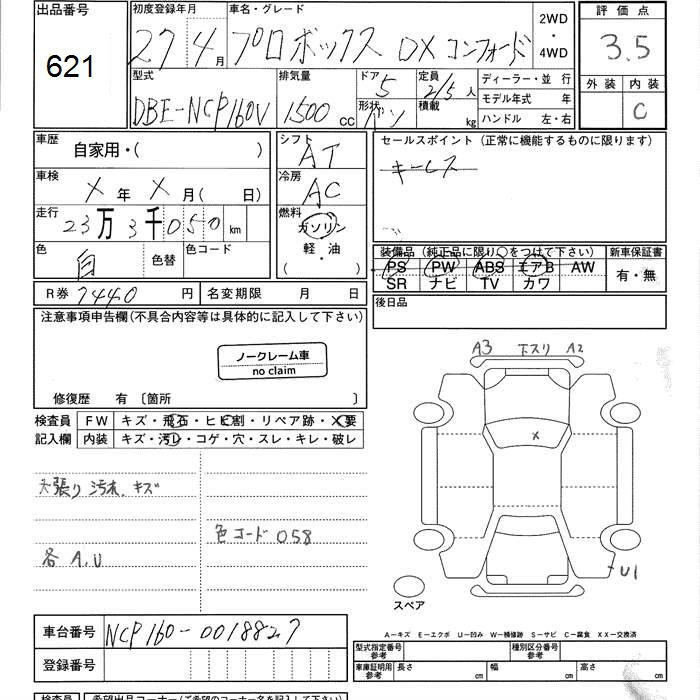 出品番号 初度登録年月 車名・グレード 2WD・4WD 評価点
621 27 4月 プロボックス DX コンフォート 3.5
型式 排気量 ドア 5 定員 2/5 人 ディーラー・並行 外装 内装
DBE-NCP160V 1500 cc 形状 バン 積載 kg モデル年式 年 C
ハンドル 左・右
車歴 自家用・( ) シフト AT セールスポイント (正常に機能するものに限ります)
車検 X年 X月(日) 冷房 AC キーレス
走行 23万3千050km 燃料 ガソリン 軽・油 ( )
色 白 色替 色コード 装備品 (純正品に限り○をつけて下さい) 新車保証書
PS PW ABS エアB AW 有・無
SR ナビ TV カワ
R券 7440円 名変期限 月 日 後日品
注意事項申告欄(不具合内容等は具体的に記入して下さい)
ノークレーム車
no claim
修復歴 有 〔箇所 〕
検査員 FW キズ・飛石・ヒビ割・リペア跡・X要
記入欄 内装 キズ・汚レ・コゲ・穴・スレ・キレ・破レ
A3 下スリ A2
X
天張り 汚れ、キズ
色コード 058
各 A,U
U1
スペア
A−キズ E−エクボ U−凹み W−補修跡 S−サビ C−腐食 XX−交換済
車台番号 NCP160-0018827
型式指定番号 参考 種別区分番号 参考
登録番号 車庫証明用 参考 長さ cm 幅 cm 高さ cm
検査員 希望出品コーナー(ご希望のコーナー名を記入下さい)